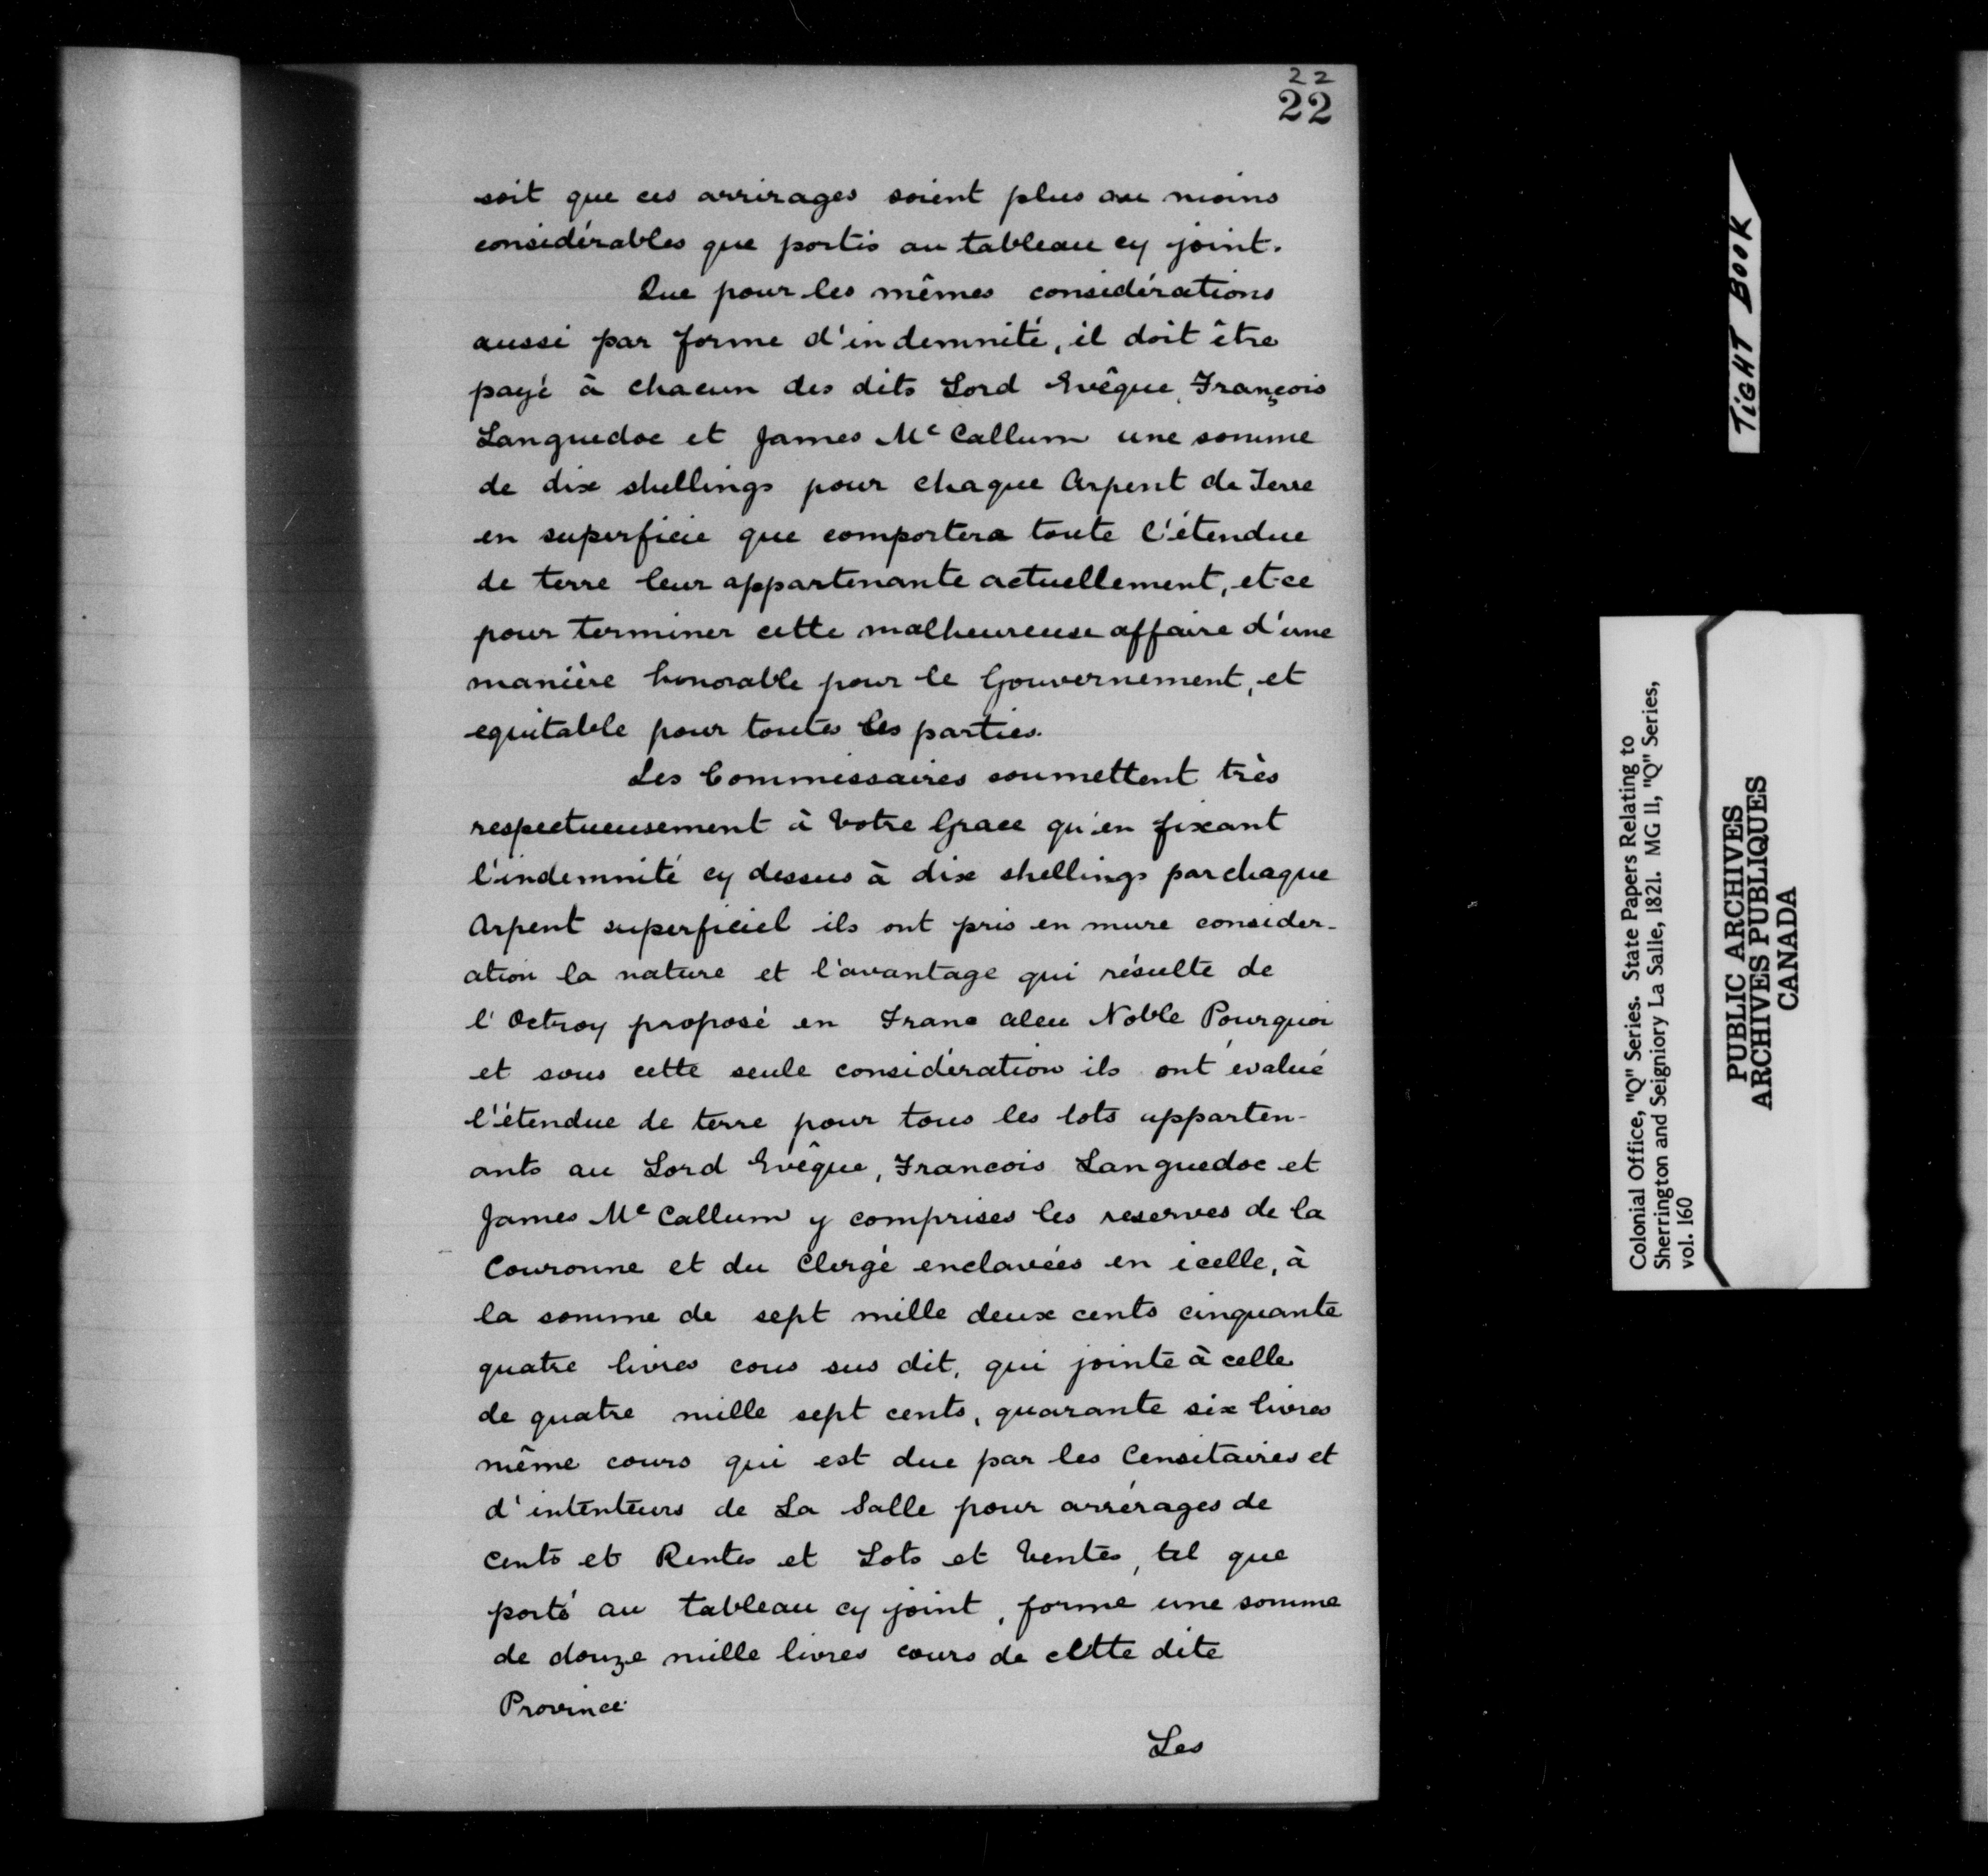 22
22
soit que ces arrirages soient plus au moins
considérables que portis au tableau cy joint.
Que pour les mêmes considérations
aussi par forme d'indemnité, il doit être
payé à chacun des dits Lord Evêque, François
Languedoc et James Mc Callum une somme
de dix shellings pour chaque Arpent de Terre
en superficie que comportera toute l'étendue
de terre leur appartenante actuellement, et ce
pour terminer cette malheureuse affaire d'une
manière honorable pour le Gouvernement, et
equitable pour toutes les parties.
Les Commissaires soumettent très
respectueusement à Votre Grace qu'en fixant
l'indemnité cy dessus à dix shellings par chaque
Arpent superficiel ils ont pris en mure consider-
ation la nature et l'avantage qui résulte de
l'Octroy proposé en Franc aleu Noble Pourquoi
et sous cette seule considération ils ont évalué
l'étendue de terre pour tous les lots apparten-
ants au Lord Evêque, Francois Languedoc et
James Mc Callum y comprises les reserves de la
Couronne et du Clergé enclavées en icelle, à
la somme de sept mille deux cents cinquante
quatre livres cous sus dit, qui jointe à celle
de quatre mille sept cents, quarante six livres
même cours qui est due par les Censitaires et
d'intenteurs de La Salle pour arrérages de
Cents et Rentes et Lots et Ventes, tel que
porté au tableau cy joint, forme une somme
de douze mille livres cours de cette dite
Province
Les
TIGHT BOOK
Colonial Office, "Q" Series. State Papers Relating to
Sherrington and Seigniory La Salle, 1821. MG 11, "Q" Series,
vol. 160
PUBLIC ARCHIVES
ARCHIVES PUBLIQUES
CANADA